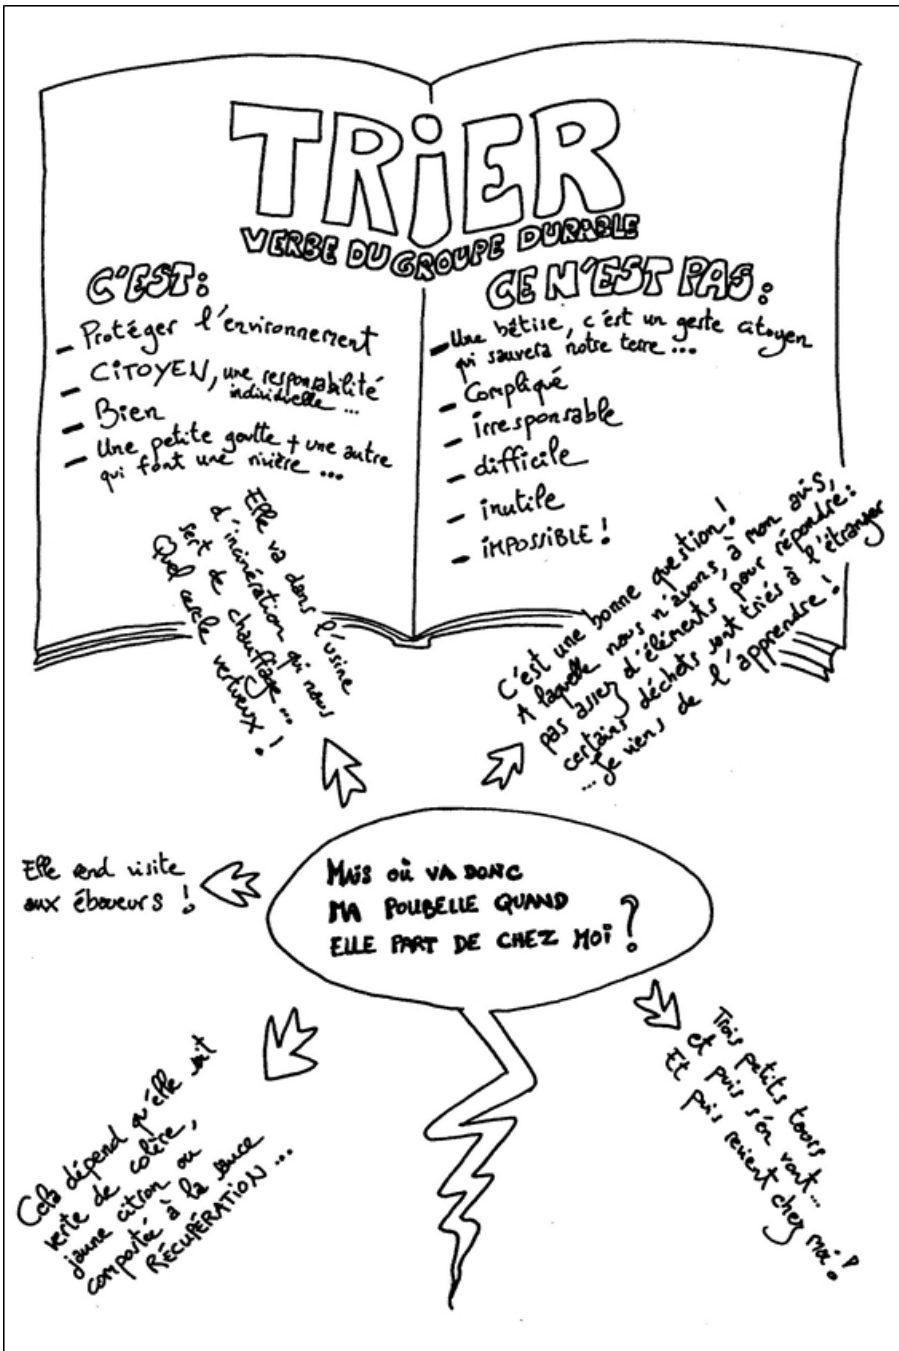 TRiER
VERBE DU GROUPE DURABLE
C'EST:
- Protéger l'environnement
- CiTOYEN, une responsabilité
individuelle...
- Bien
- Une petite goutte + une autre
qui font une rivière ...
CE N'EST PAS:
- Une bêtise, c'est un geste citoyen
qui sauvera notre terre ...
- Compliqué
- irresponsable
- difficile
- inutile
- iMPOSSiBLE !
Elle va dans l'usine
d'incinération qui nous
sert de chauffage...
Quel cercle vertueux !
C'est une bonne question!
A laquelle nous n'avons, à mon avis,
pas assez d'éléments pour répondre:
certains déchets sont triés à l'étranger
... Je viens de l'apprendre !
Elle rend visite
aux éboueurs !
MAiS OÙ VA DONC
MA POUBELLE QUAND
ELLE PART DE CHEZ MOi ?
Cela dépend qu'elle soit
verte de colère,
jaune citron ou
compostée à la sauce
RÉCUPÉRATION ...
Trois petits tours
et puis s'en vont...
Et puis revient chez moi!